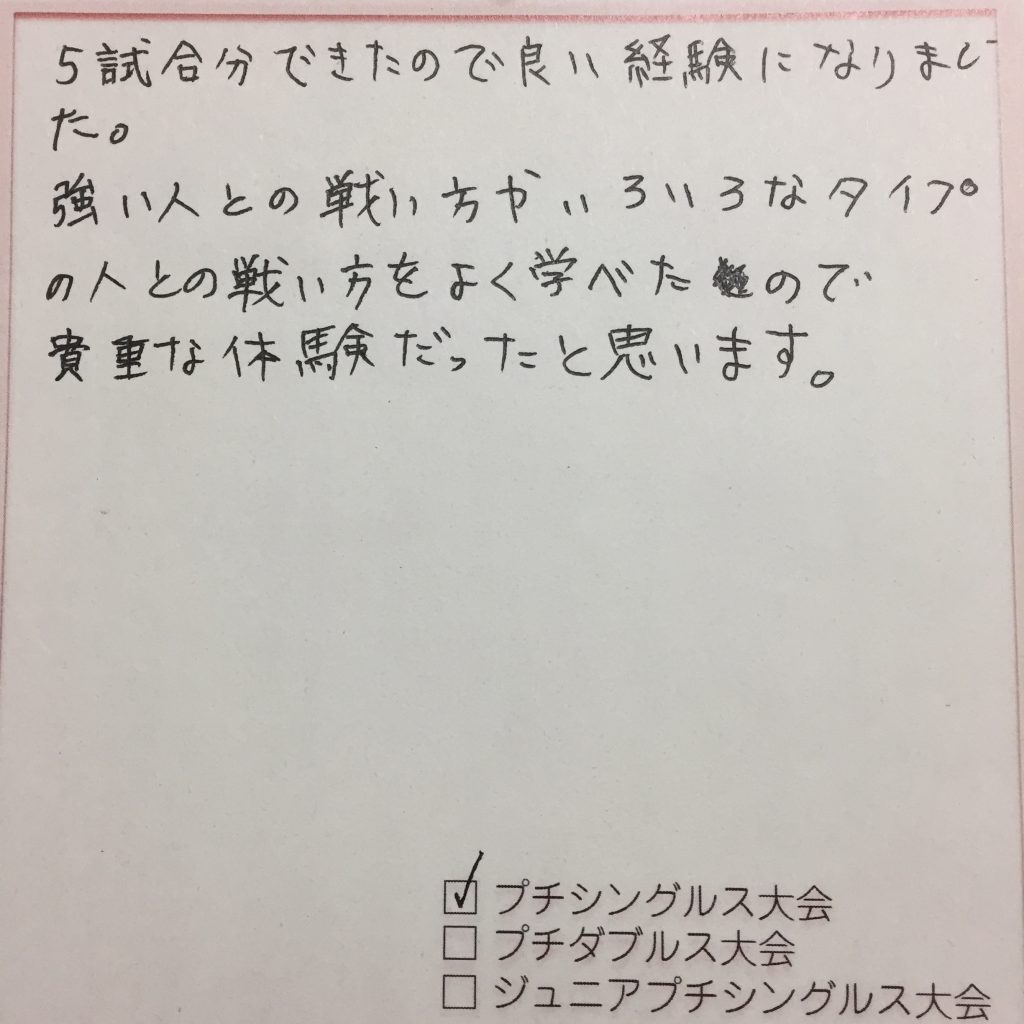 5試合分できたので良い経験になりまし
た。
強い人との戦い方や いろいろなタイプ
の人との戦い方をよく学べたので
貴重な体験だったと思います。
☑ プチシングルス大会
□ プチダブルス大会
□ ジュニアプチシングルス大会